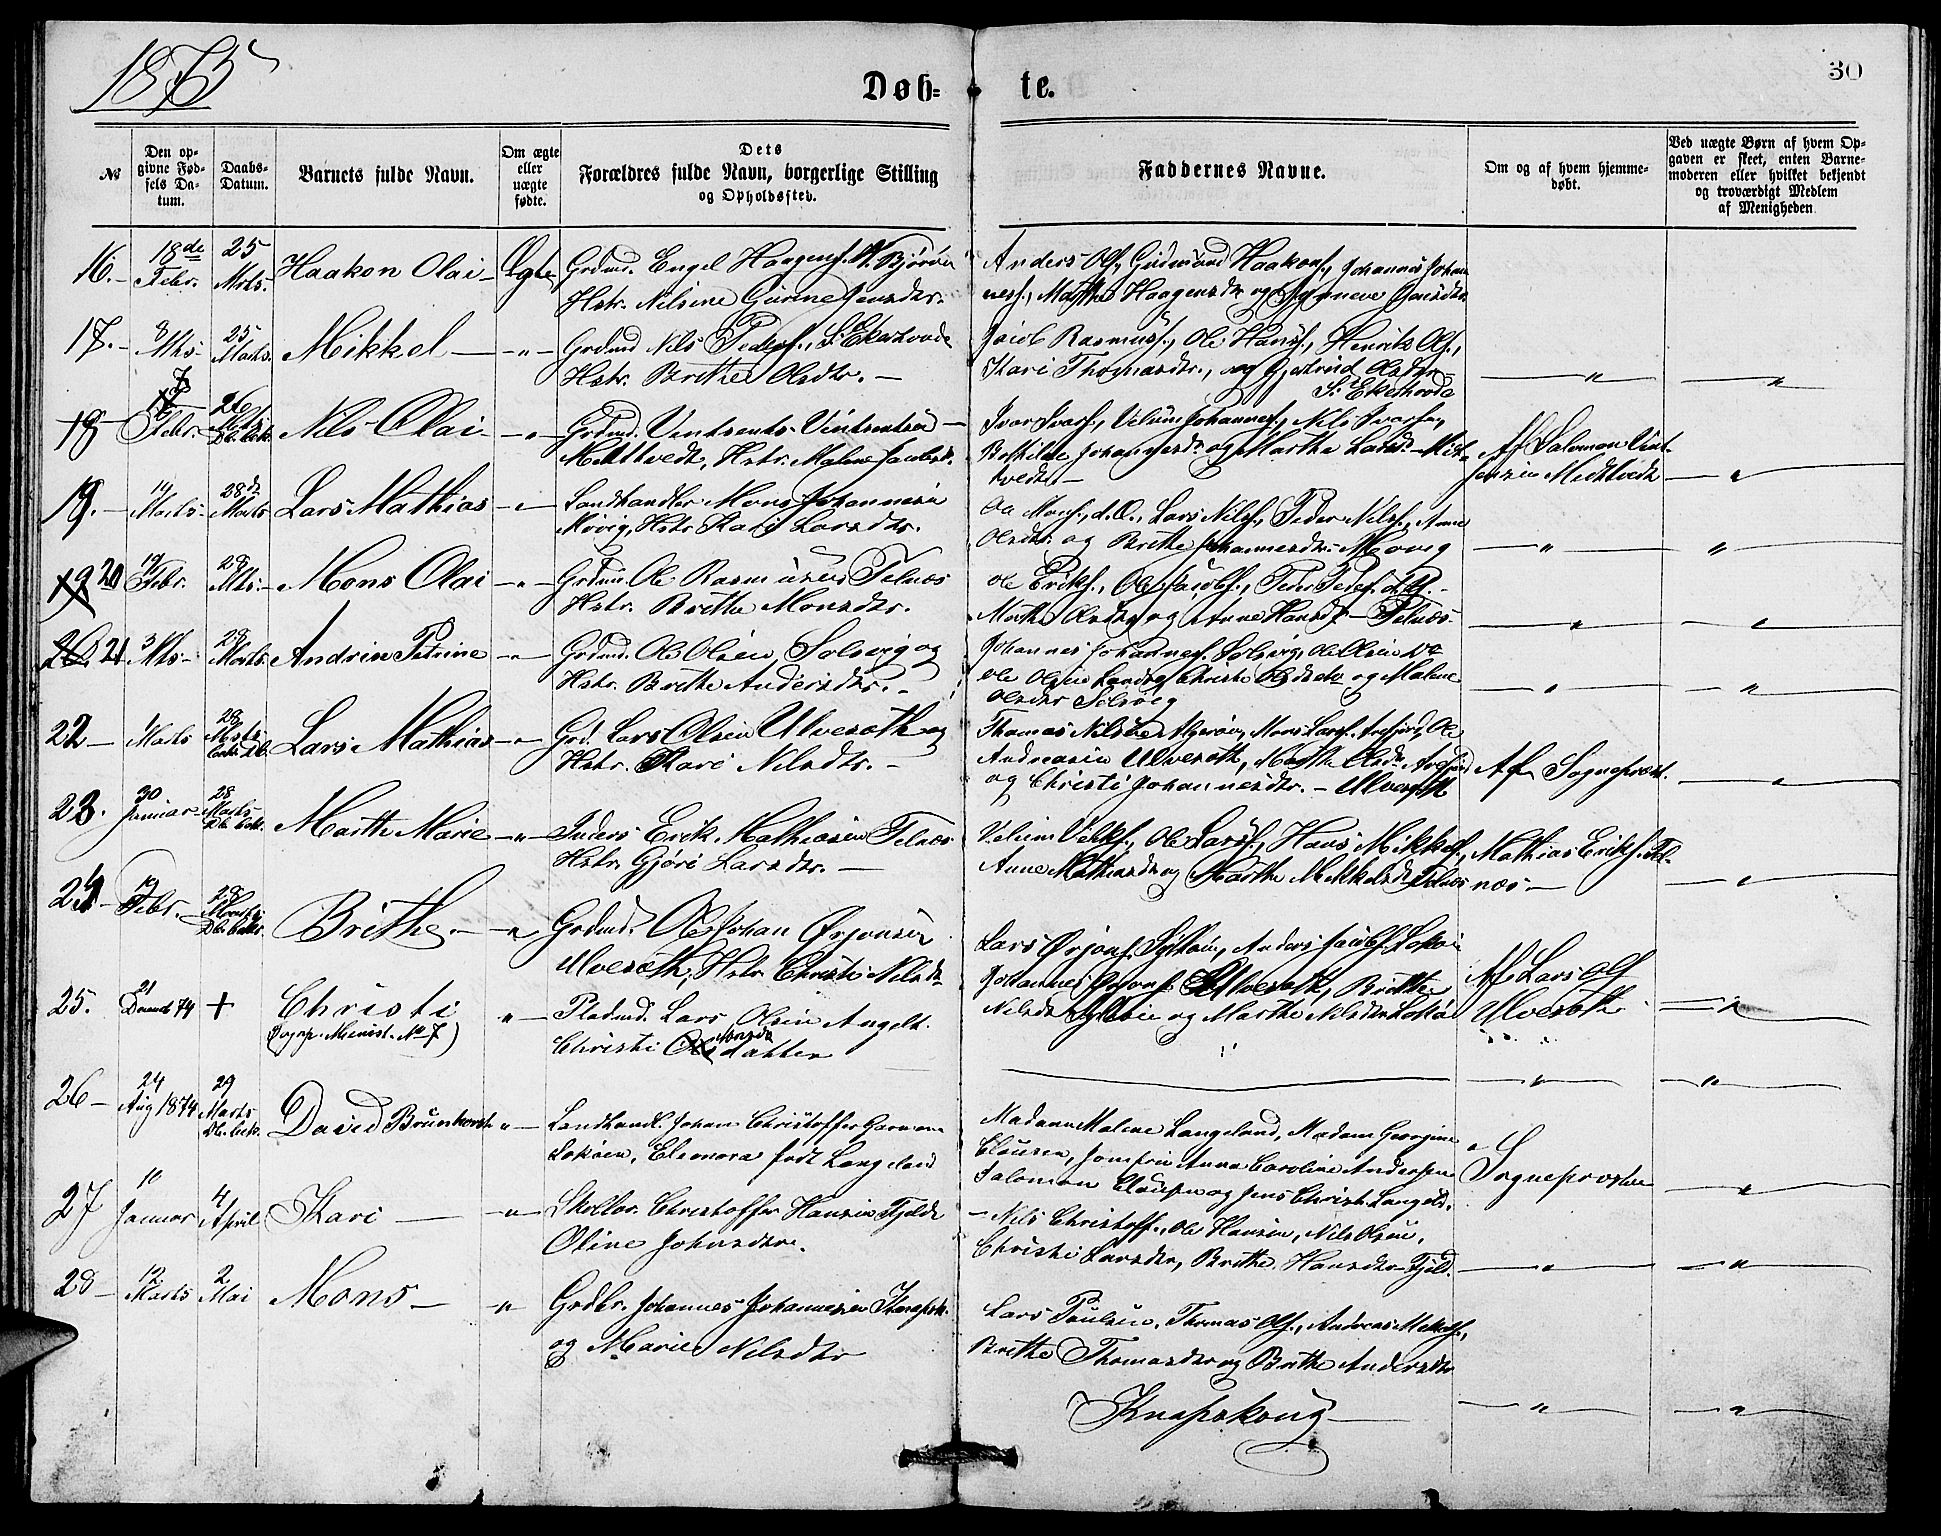 1875
Døb-te.
30
№
Den opgivne Fødsels Datum.
Daabs-Datum.
Barnets fulde Navn.
Om ægte eller uægte fødte.
Dets Forældres fulde Navn, borgerlige Stilling og Opholdssted.
Faddernes Navne.
Om og af hvem hjemmedøbt.
Ved uægte Børn af hvem Opgaven er skeet, enten Barnemoderen eller hvilket bekjendt og troværdigt Medlem af Menigheden
16. 18de Febr. 25 Mrts. Haakon Olai Ægte Grdmd. Engel Haagens. N. Bjorøen
Hstr. Nilsine Gurine Jensdtr.
Anders Ols., Haakons., Johannes Johannes., Marthe Haagensdtr og Synneve Jensdtr.
17. 8 Mts. 25 Marts. Mikkel " Grdmd Nils Peders., S. Ekerhovde
Hstr. Brithe Olsdtr.
Jacob Rasmuss., Ole Hans., Henrik Ols.,
Kari Thomasdtr., og Gjertrud Olsdtr
S. Ekerhovde " "
18 7 Febr. 26 Mts Db. bek. Nils Olai " Grdmd. Vintsents Vintsentsen
Midttvedt, Hstr. Malene Jacobsd.
Ivar Ivars., Vilum Johannes., Nils Ivarsen,
Bothilde Johannesd. og Marthe Larsd. Midttvedt
Af Salomon Vintsensen Midttvedt "
19. 14 Marts 28de Marts Lars Mathias " Landhandler Mons Johannesen
Movig, Hstr. Kari Larsdtr.
Ole Mons., d.O., Lars Nils., Peder Nils., Anne
Olsdtr. og Brithe Johannesdtr. Movig " "
19 20 19 Febr. 28 Mts. Mons Olai " Grdmd Ole Rasmusen Telnæs
Hstr. Brithe Monsdtr.
Ole Eriks., Ole Jacobs., Peder Peders.
Marthe Olsdtr og Anne Hansd. Telnæs " "
20. 21 3 Mts. 28 Marts. Andrine Petrine " Grdmd. Ole Olsen Solsvig og
Hstr. Brithe Andersdtr.
Johannes Johannes. Solsvig, Ole Olsen Do
Ole Olsen Christi Olsdtr og Malene
Olsdtr Solsvig " "
22 1 Marts 28 Marts Lars Mathias " Grd. Lars Olsen Ulveseth og
Hstr. Kari Nilsdtr.
Thomas Nilsen Algerøen, Mons Lars. Arefjord, Ole
Andreasen Ulveseth, Marthe Olsdr. Arefjord
og Christi Johannesdtr. Ulveseth
Af Sognepræst. "
23. 30 Januar 28 Marts Db. bek. Marthe Marie " Inders Erik Mathiasen Telnæs
Hstr. Gjøri Larsdtr.
Velum Ols., Ole Lars., Hans Mikkels.,
Anne Mathiasdr og Marthe Mikkelsdr. Telnæs
Mathias Eriks. Telnæs "
24 19 Febr. 28 Marts Db. bek. Brithe " Grdmd. Ole Johan Ørjansen
Ulveseth, Hstr. Christi Nilsdr.
Lars Ørjans. Anders Jacobs. Lokøen
Johannes Ulveseth, Brithe
Nilsdr og Marthe Nilsdtr Lokøe
Af Lars Ols Ulveseth "
25. 21 Decemb 74 + Christi
(dopp. Minist. No 7)
" Pladsmd. Lars Olsen Angelt.
Christi Monsdatter
" "
26 24 Aug 1874 29 Marts Db. bek. David Brunhorst " Landhandl. Johan Christoffer Garmann
Lokøen, Eleonora født Langeland
Madame Malene Langeland, Madam Georgine
Clausen, Jomfru Anna Caroline Andersen
Salomon Clausen og Jens Christ. Langeld.
" Sognepræsten "
27 10 Januar 4 April Kari " Skollær. Christoffer Hansen Fjelde
Oline Johnsdtr.
Nils Christoff., Ole Hansen, Nils Olsen,
Christi Larsdtr, Brithe Hansdtr Fjeld. " "
28 12 Marts 2 Mai Mons " Grdbr. Johannes Johannesen Knapsk.
og Marie Nilsdtr
Lars Poulsen, Thomas Ols., Andreas Mikkels.,
Brithe Thomasdtr og Brithe Andersdtr
Knapskoug " "